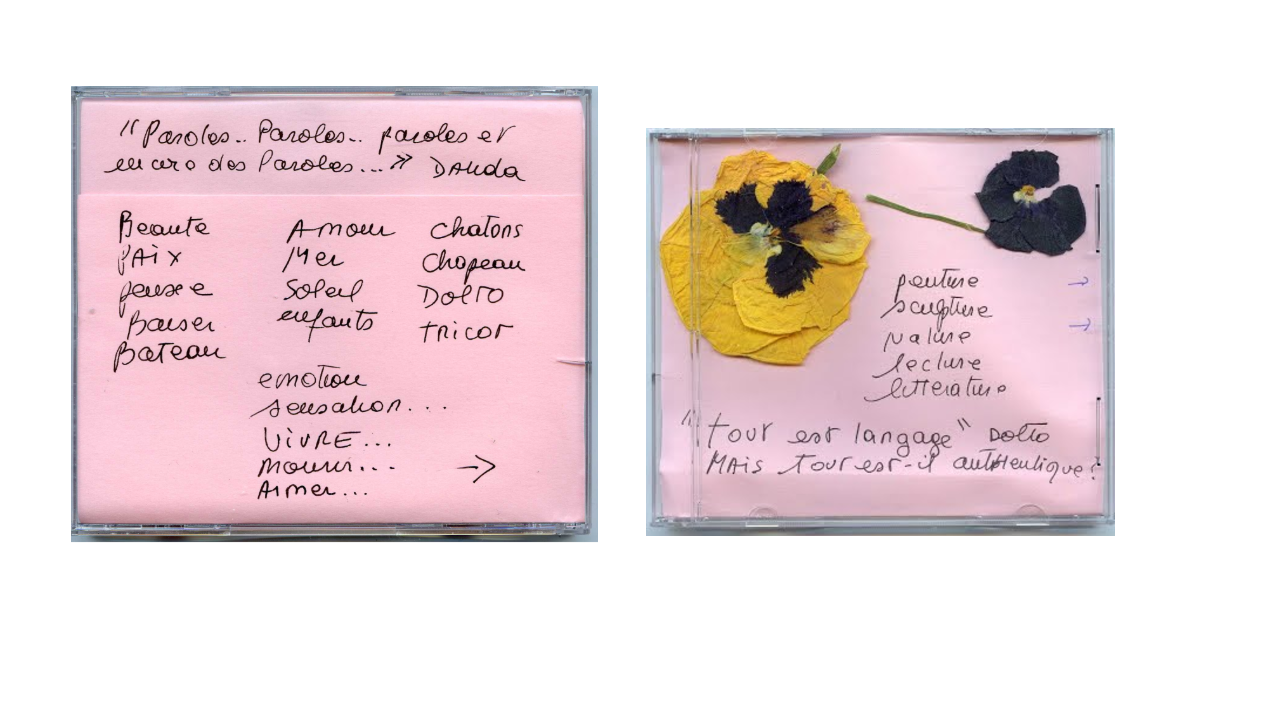 "Paroles.. Paroles.. paroles et
encore des Paroles..." DAlida
Beaute
PAix
pensee
Baiser
Bateau
Amour
Mer
Soleil
enfants
chatons
chapeau
Dolto
tricot
emotion
sensation...
ViVRE...
mourir...
Aimer...
→
peinture →
sculpture
nature →
lecture
litterature
"tout est langage" Dolto
MAis tout est-il autHentique?